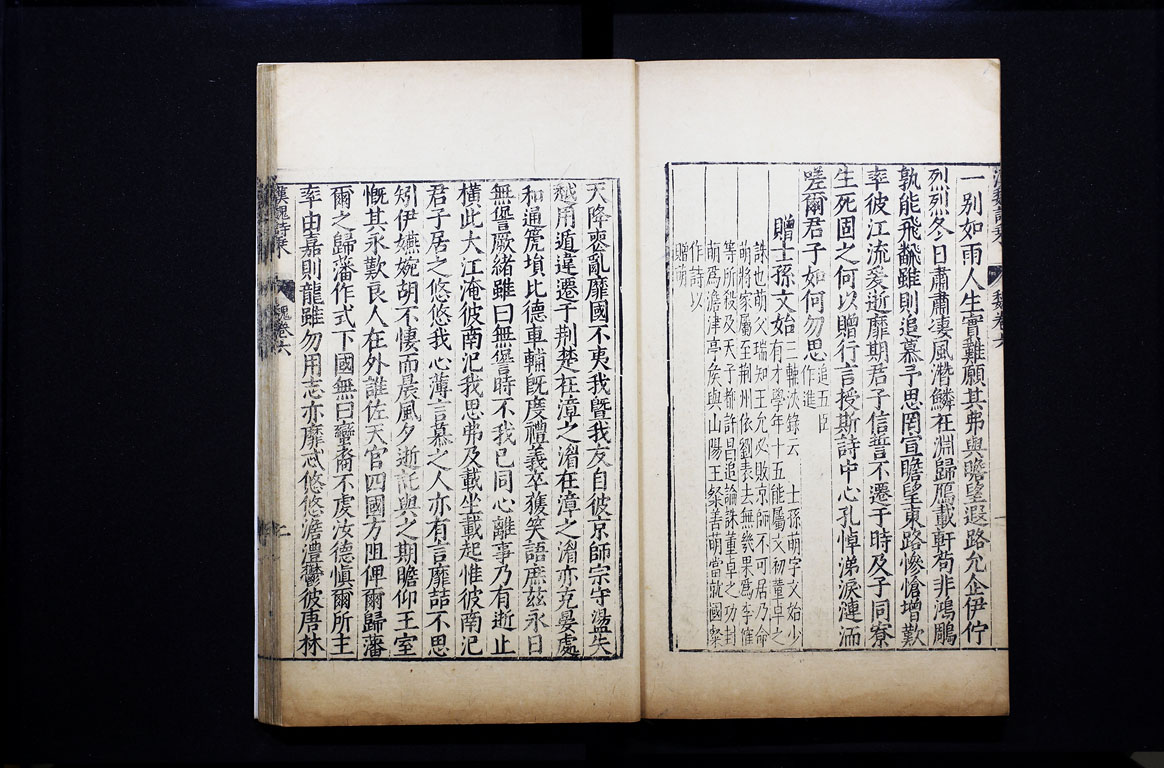 一別如雨人生實難願其弗與瞻望遐路允企伊佇
烈烈冬日肅肅淒風潛鱗在淵歸鴈載軒苟非鴻鵰
孰能飛飜雖則追慕予思罔宣瞻望東路慘愴增歎
率彼江流爰逝靡期君子信誓不遷于時及子同寮
生死固之何以贈行言授斯詩中心孔悼涕淚漣洏
嗟爾君子如何勿思
追五臣
作進
贈士孫文始
三輔決錄云 士孫萌字文始少
有才學年十五能屬文初董卓之
誅也萌父瑞知王允必敗京師不可居乃命
萌將家屬至荆州依劉表去無幾果爲李傕
等所殺及天子都許昌追論誅董卓之功封
萌爲澹津亭矦與山陽王粲善萌當就國粲
作詩以
贈萌
天降喪亂靡國不夷我暨我友自彼京師宗守盪失
越用遁違遷于荆楚在漳之湄在漳之湄亦克晏處
和通篪塤比德車輔旣度禮義卒獲笑語庶茲永日
無諐厥緒雖曰無諐時不我已同心離事乃有逝止
橫此大江淹彼南汜我思弗及載坐載起惟彼南汜
君子居之悠悠我心薄言慕之人亦有言靡喆不思
矧伊嬿婉胡不悽而晨風夕逝託與之期瞻仰王室
慨其永歎良人在外誰佐天官四國方阻俾爾歸藩
爾之歸藩作式下國無曰蠻裔不虔汝德慎爾所主
率由嘉則龍雖勿用志亦靡忒悠悠澹澧鬱彼唐林
漢魏詩乘
魏卷六
二